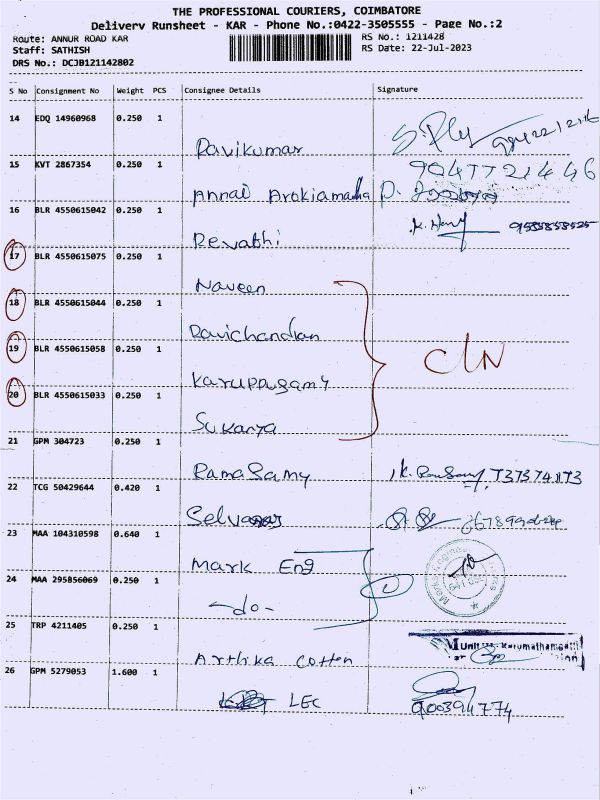 THE PROFESSIONAL COURIERS, COIMBATORE
Delivery Runsheet - KAR - Phone No.:0422-3505555 - Page No.:2
Route: ANNUR ROAD KAR
RS No.: 1211428
Staff: SATHISH
RS Date: 22-Jul-2023
DRS No.: DCJB121142802
S No Consignment No Weight PCS Consignee Details Signature
14 EDQ 14960968 0.250 1
Ravikumar
15 KVT 2867354 0.250 1 9047721446
Annai Arokiamadha
16 BLR 4550615042 0.250 1
Revathi
17 BLR 4550615075 0.250 1
Naveen
18 BLR 4550615044 0.250 1
Ravichandran
19 BLR 4550615058 0.250 1
Karupasamy
20 BLR 4550615033 0.250 1
Sukanya
21 GPM 304723 0.250 1
Ramasamy
22 TCG 50429644 0.420 1
23 MAA 104310598 0.640 1
Mark Eng
24 MAA 295856069 0.250 1
-do-
25 TRP 4211405 0.250 1
Arthika Cotten
26 GPM 5279053 1.600 1
LEC